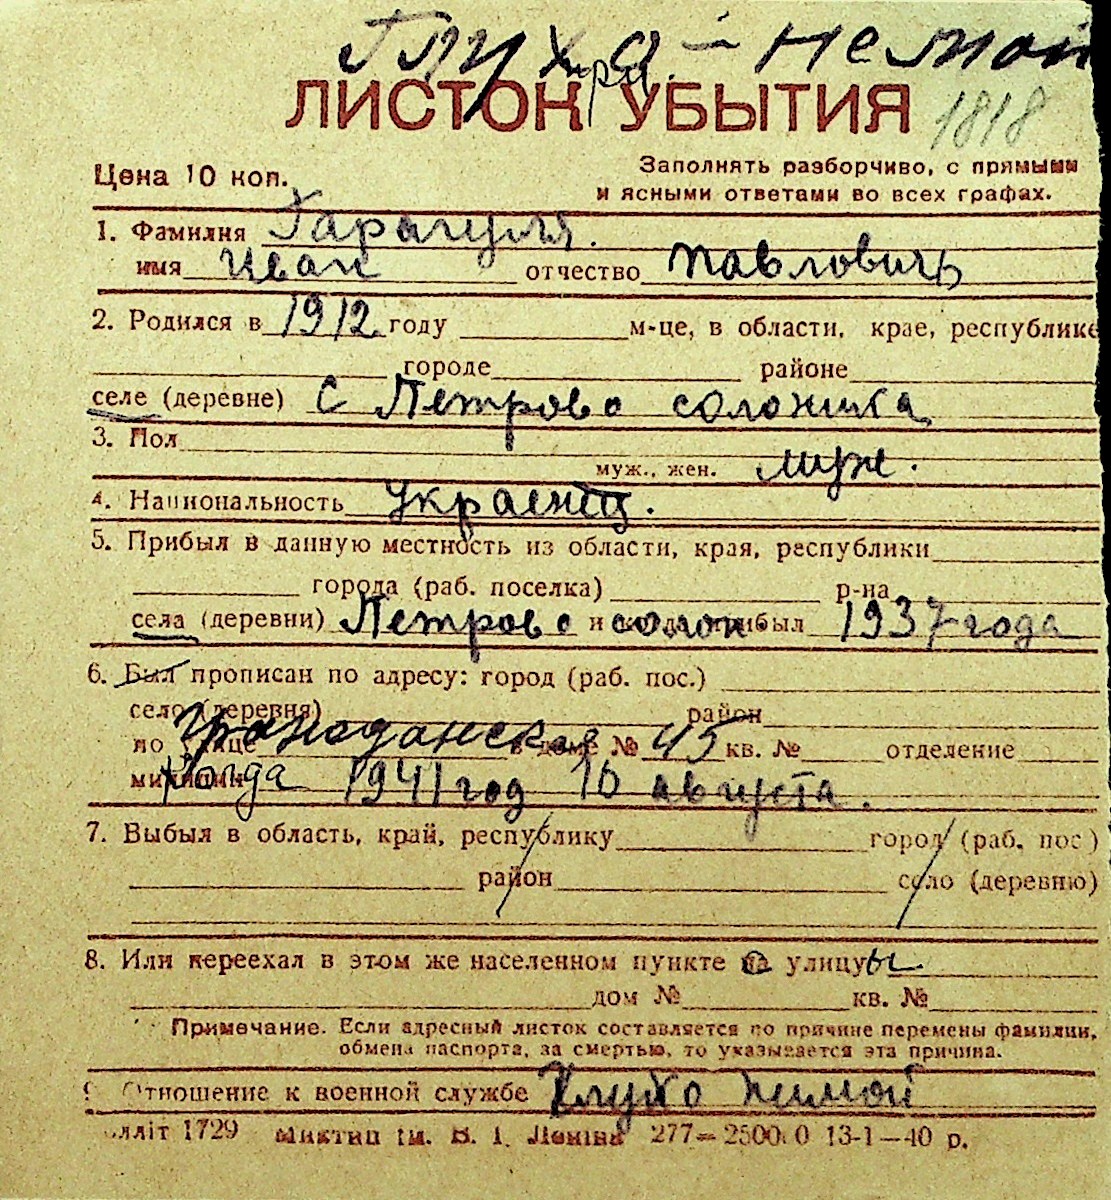 Глухо-немой
ЛИСТОК УБЫТИЯ
1818
Цена 10 коп.
Заполнять разборчиво, с прямыми
и ясными ответами во всех графах.
1. Фамилия Гарагуля.
имя Иван отчество Павловичь
2. Родился в 1912 году м-це, в области, крае, республике
городе районе
селе (деревне) С Петрово солоника
3. Пол
муж., жен. муж.
4. Национальность украенец.
5. Прибыл в данную местность из области, края, республики
города (раб. поселка) р-на
села (деревни) Петрово солон. и когда прибыл 1937 года
6. Был прописан по адресу: город (раб. пос.)
село (деревня) район
по улице Гражданская в доме № 45 кв. № отделение
милиции когда 1941 год 16 августа.
7. Выбыл в область, край, республику город (раб. пос.)
район село (деревню)
8. Или переехал в этом же населенном пункте на улицу
дом № кв. №
Примечание. Если адресный листок составляется по причине перемены фамилии,
обмена паспорта, за смертью, то указывается эта причина.
9. Отношение к военной службе Глухо Нимой
лліт 1729 ім. В. І. Леніна 277— 13-1—40 р.